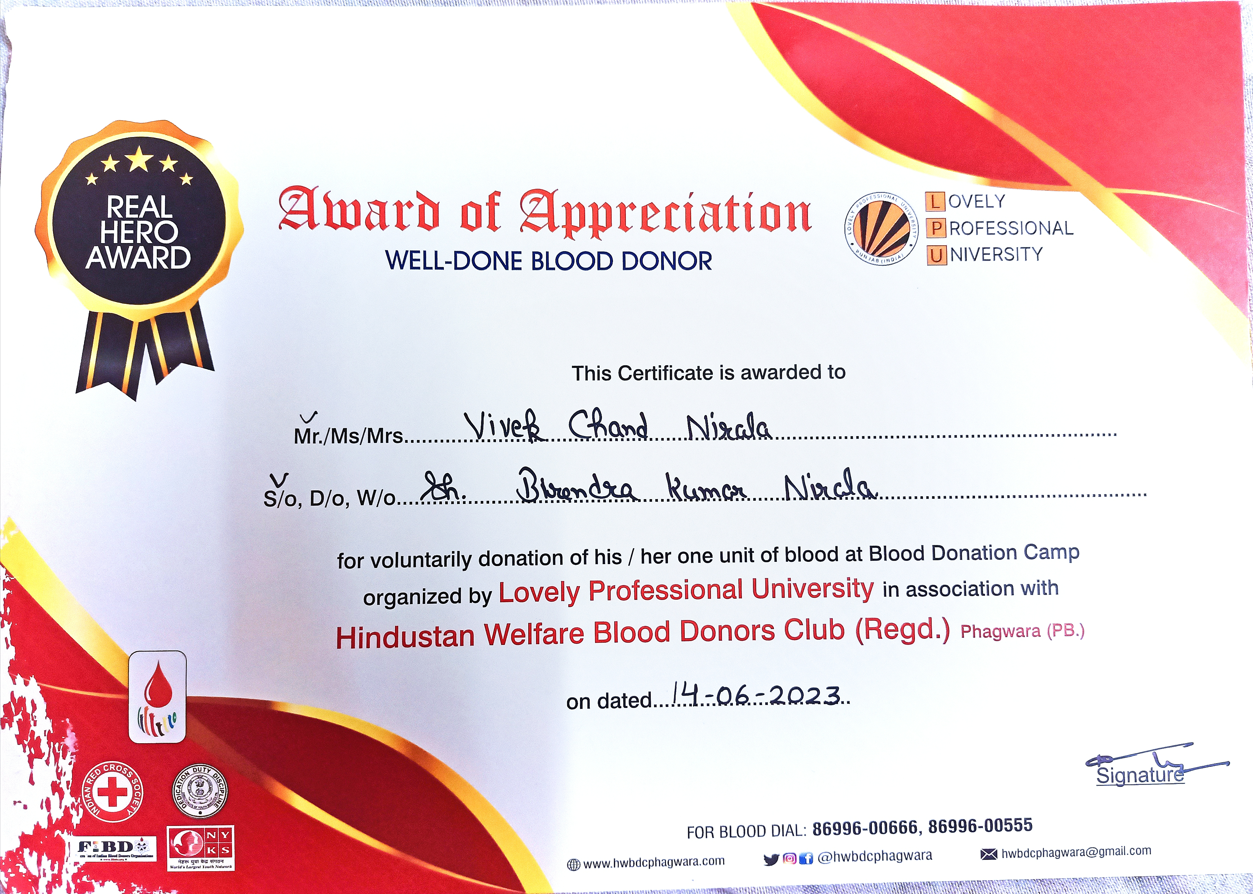 REAL
HERO
AWARD
Award of Appreciation
WELL-DONE BLOOD DONOR
LOVELY PROFESSIONAL UNIVERSITY
PUNJAB (INDIA)
LOVELY
PROFESSIONAL
UNIVERSITY
This Certificate is awarded to
Mr./Ms/Mrs.....Vivek Chand Nirala.....
S/o, D/o, W/o.....Sh. Birendra Kumar Nirala.....
for voluntarily donation of his / her one unit of blood at Blood Donation Camp
organized by Lovely Professional University in association with
Hindustan Welfare Blood Donors Club (Regd.) Phagwara (PB.)
on dated....14-06-2023..
Signature
INDIAN RED CROSS SOCIETY
DEDICATION DUTY DISCIPLINE
FIBD
NYKS
नेहरू युवा केन्द्र संगठन
World's Largest Youth Network
FOR BLOOD DIAL: 86996-00666, 86996-00555
www.hwbdcphagwara.com @hwbdcphagwara hwbdcphagwara@gmail.com